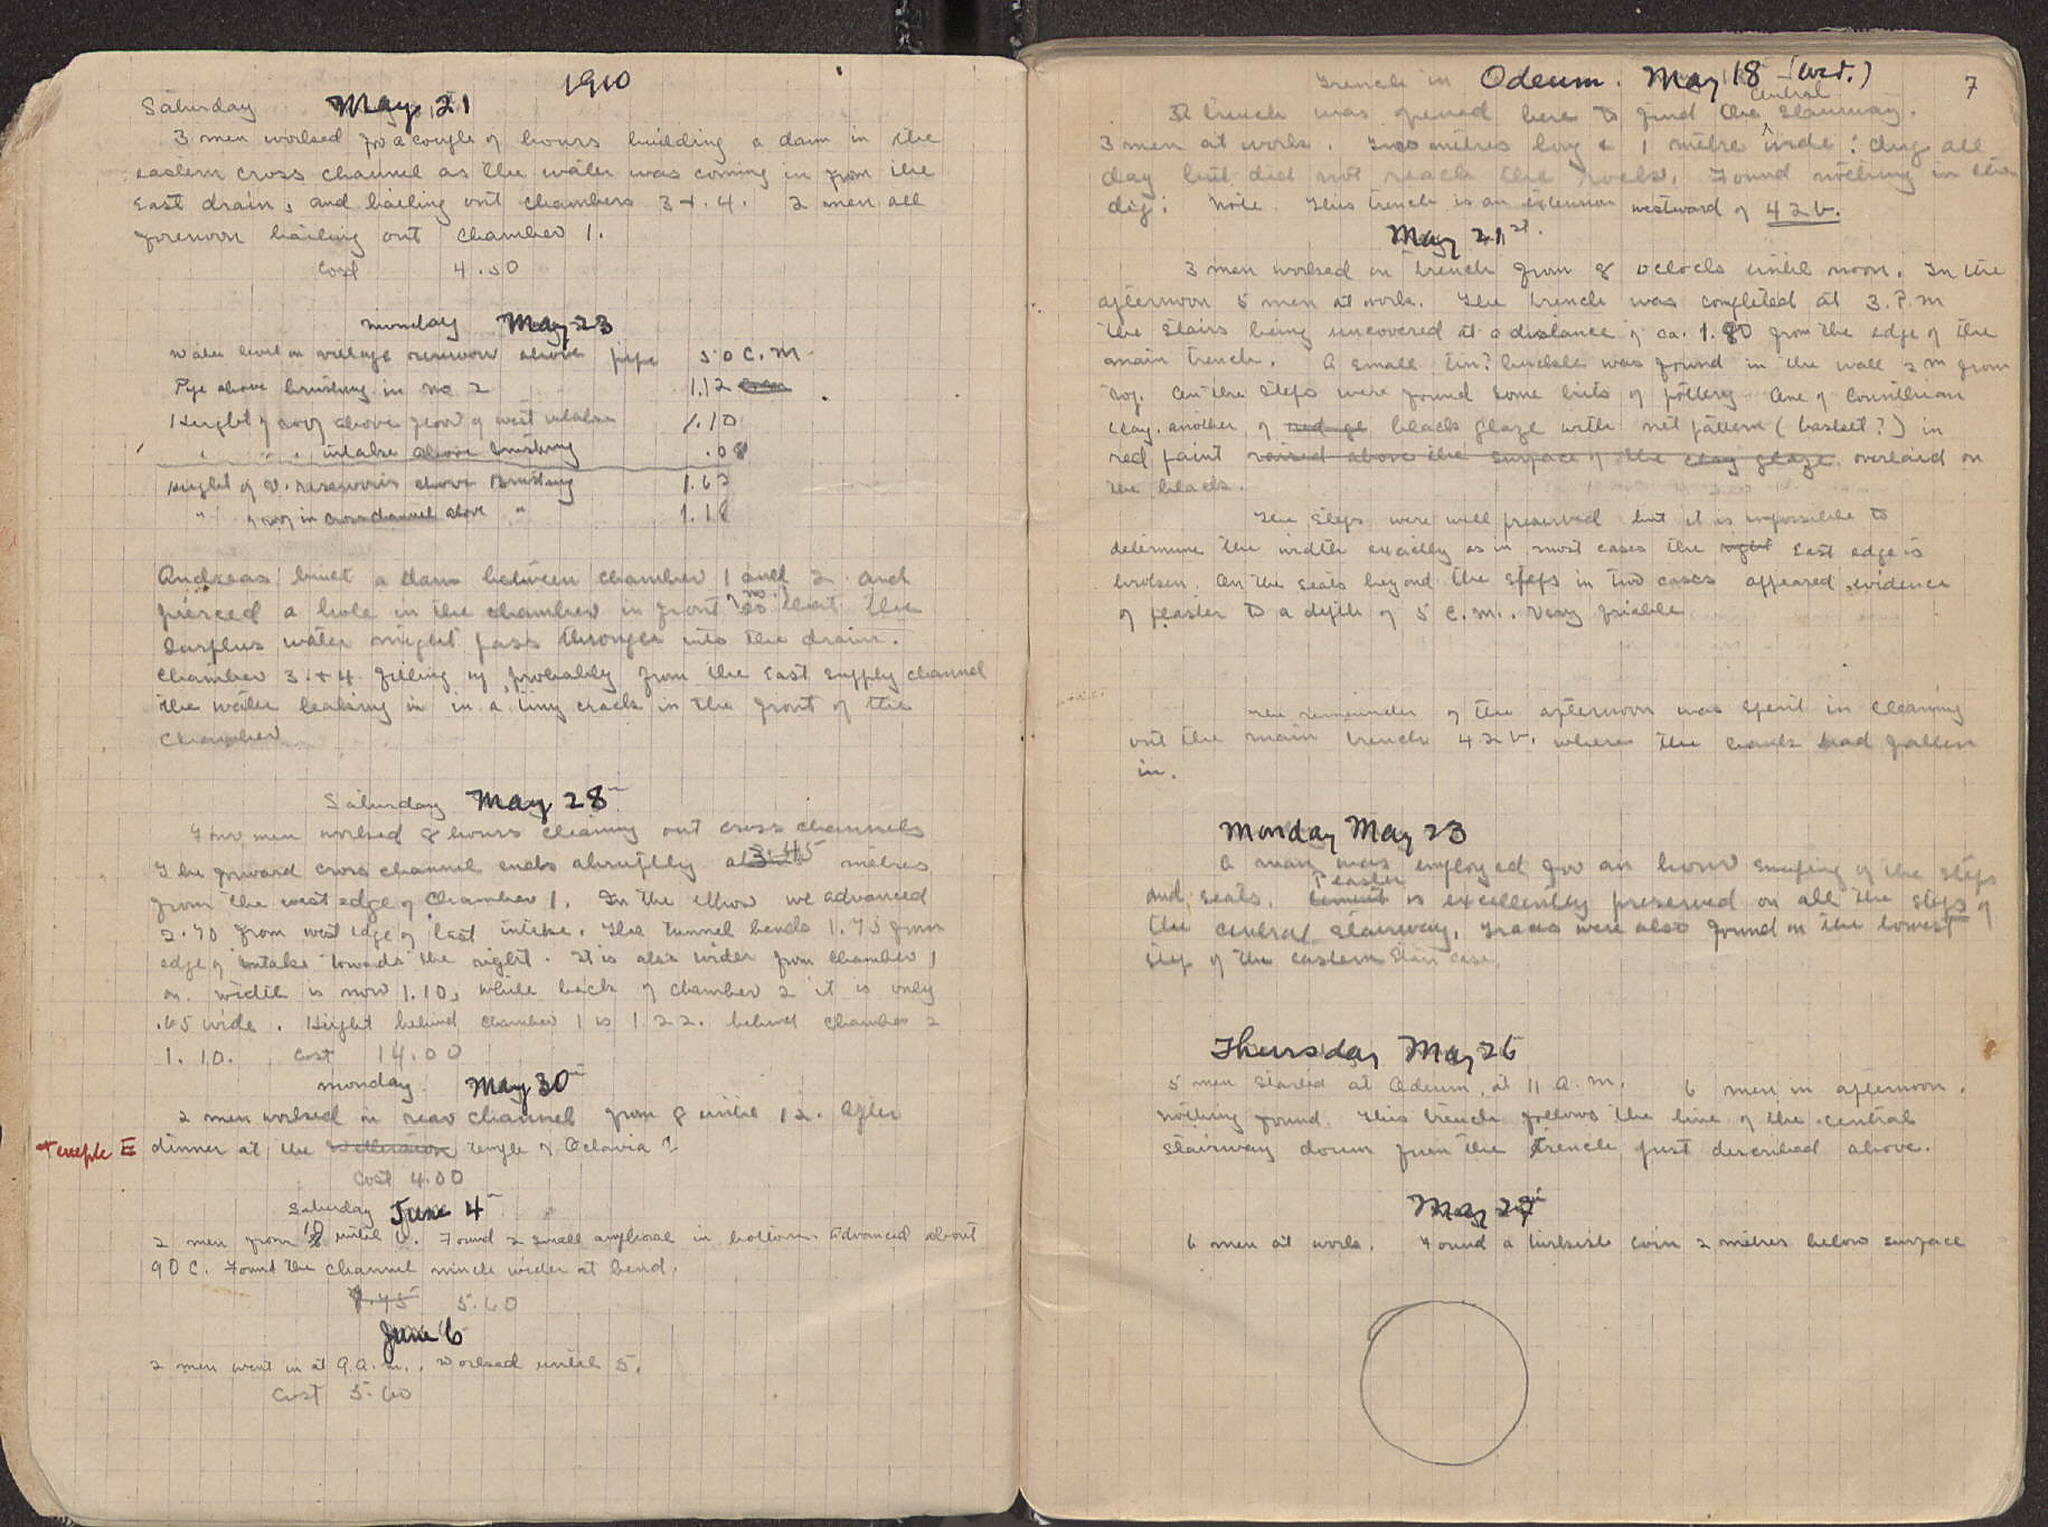 1910
Saturday May 21
3 men worked for a couple of hours building a dam in the
eastern cross channel as the water was coming in from the
East drain, and bailing out chambers 3 + 4. 2 men all
forenoon bailing out chamber 1.
Cost 4.50
Monday May 23
Water level in village reservoir above pipe 50 C.M.
Pipe above in no 2 1.12
Height of roof above floor of west intake 1.10
" " " intake above .08
Height of reservoirs above 1.63
" of roof in cross channel above " 1.18
Andreas built a dam between chamber 1 and 2 and
pierced a hole in the chamber in front of no. 1 so that the
surplus water might pass through into the drain.
Chamber 3 + 4 filling up probably from the East supply channel
the water leaking in in a tiny crack in the front of the
chamber
Saturday May 28th
Four men worked 8 hours cleaning out cross channels
The forward cross channel ends abruptly at 3.45 metres
from the west edge of Chamber 1. In the other we advanced
2.70 from west edge of last intake. The tunnel bends 1.75 from
edge of intake towards the right. It is also wider from chamber 1
on. width is now 1.10, while back of chamber 2 it is only
.65 wide. Height behind chamber 1 is 1.22. behind chamber 2
1.10. Cost 14.00
Monday May 30th
2 men worked in rear channel from 8 until 12. After
Temple E dinner at the temple of Octavia?
Cost 4.00
Saturday June 4th
2 men from 10 until 6. Found 2 small amphorae in bottom. Advanced about
90 C. Found the channel much wider at bend.
7.75 5.60
June 6
2 men went in at 9 a.m., worked until 5.
Cost 5.60
Trench in Odeum. May 18 (Wed.) 7
A trench was opened here to find the central stairway.
3 men at work. Two metres long & 1 metre wide: dug all
day but did not reach the rock. Found nothing in the
dig: Note. This trench is an extension westward of 42b.
May 21st.
3 men worked on trench from 8 o'clock until noon. In the
afternoon 5 men at work. The trench was completed at 3. P.M
the stairs being uncovered at a distance of ca. 1.80 from the edge of the
main trench. A small tin? buckle was found in the wall 2 m from
top. On the steps were found some bits of pottery. One of Corinthian
clay. another of black glaze with net pattern (basket?) in
red paint raised above the surface of the clay glaze overlaid on
the black.
The steps were well preserved but it is impossible to
determine the width exactly as in most cases the right East edge is
broken. On the seats beyond the steps in two cases appeared evidence
of plaster to a depth of 5 c.m.. Very friable.
The remainder of the afternoon was spent in cleaning
out the main trench 42b. where the bank had fallen
in.
Monday May 23
A man was employed for an hour sweeping of the steps
and seats. Cement Plaster is excellently preserved on all the steps of
the central stairway, traces were also found on the lowest
step of the eastern stair case.
Thursday May 26
5 men started at Odeum, at 11 a.m. 6 men in afternoon.
Nothing found. This trench follows the line of the central
stairway down from the trench just described above.
May 27th
6 men at work. Found a turkish coin 2 metres below surface